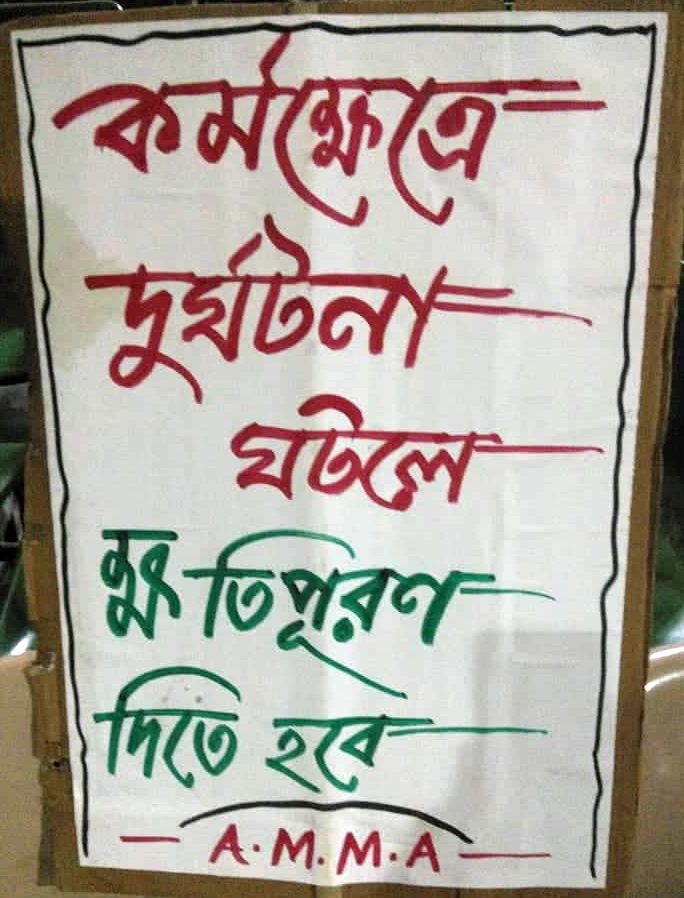 কর্মক্ষেত্রে
দুর্ঘটনা
ঘটলে
ক্ষতিপূরণ
দিতে হবে
— A.M.M.A —